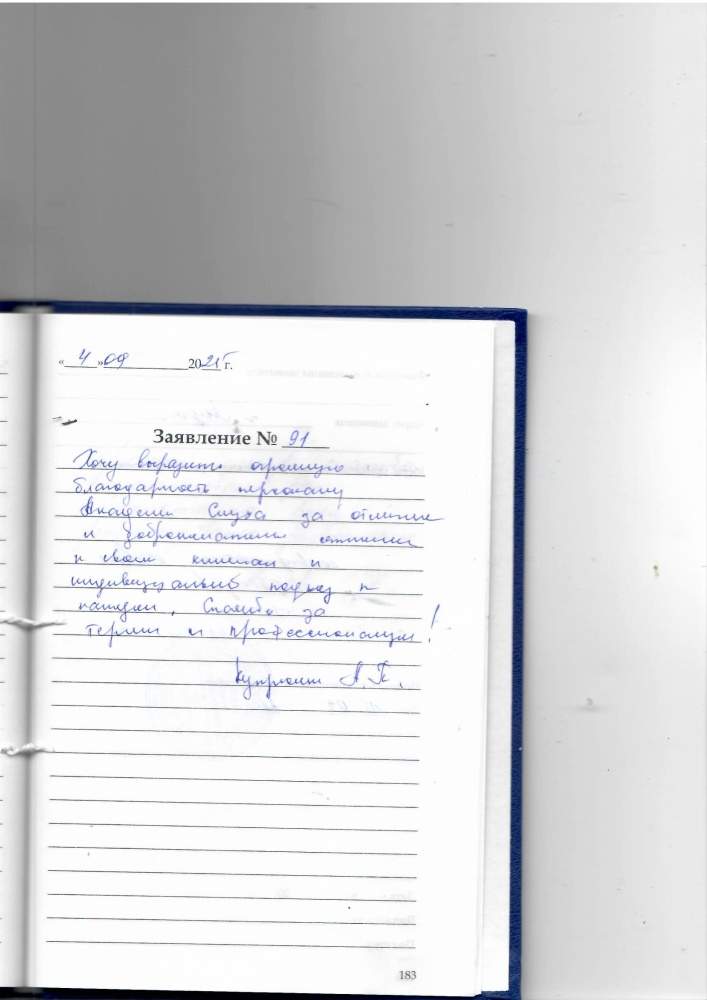 « 4 » 09 2021 г.
Заявление № 91
Хочу выразить огромную
благодарность персоналу
Академии Слуха за отличное
и доброжелательное отношение
к своим клиентам и
индивидуальный подход к
каждому. Спасибо за
терпение и профессионализм!
А. П.
183